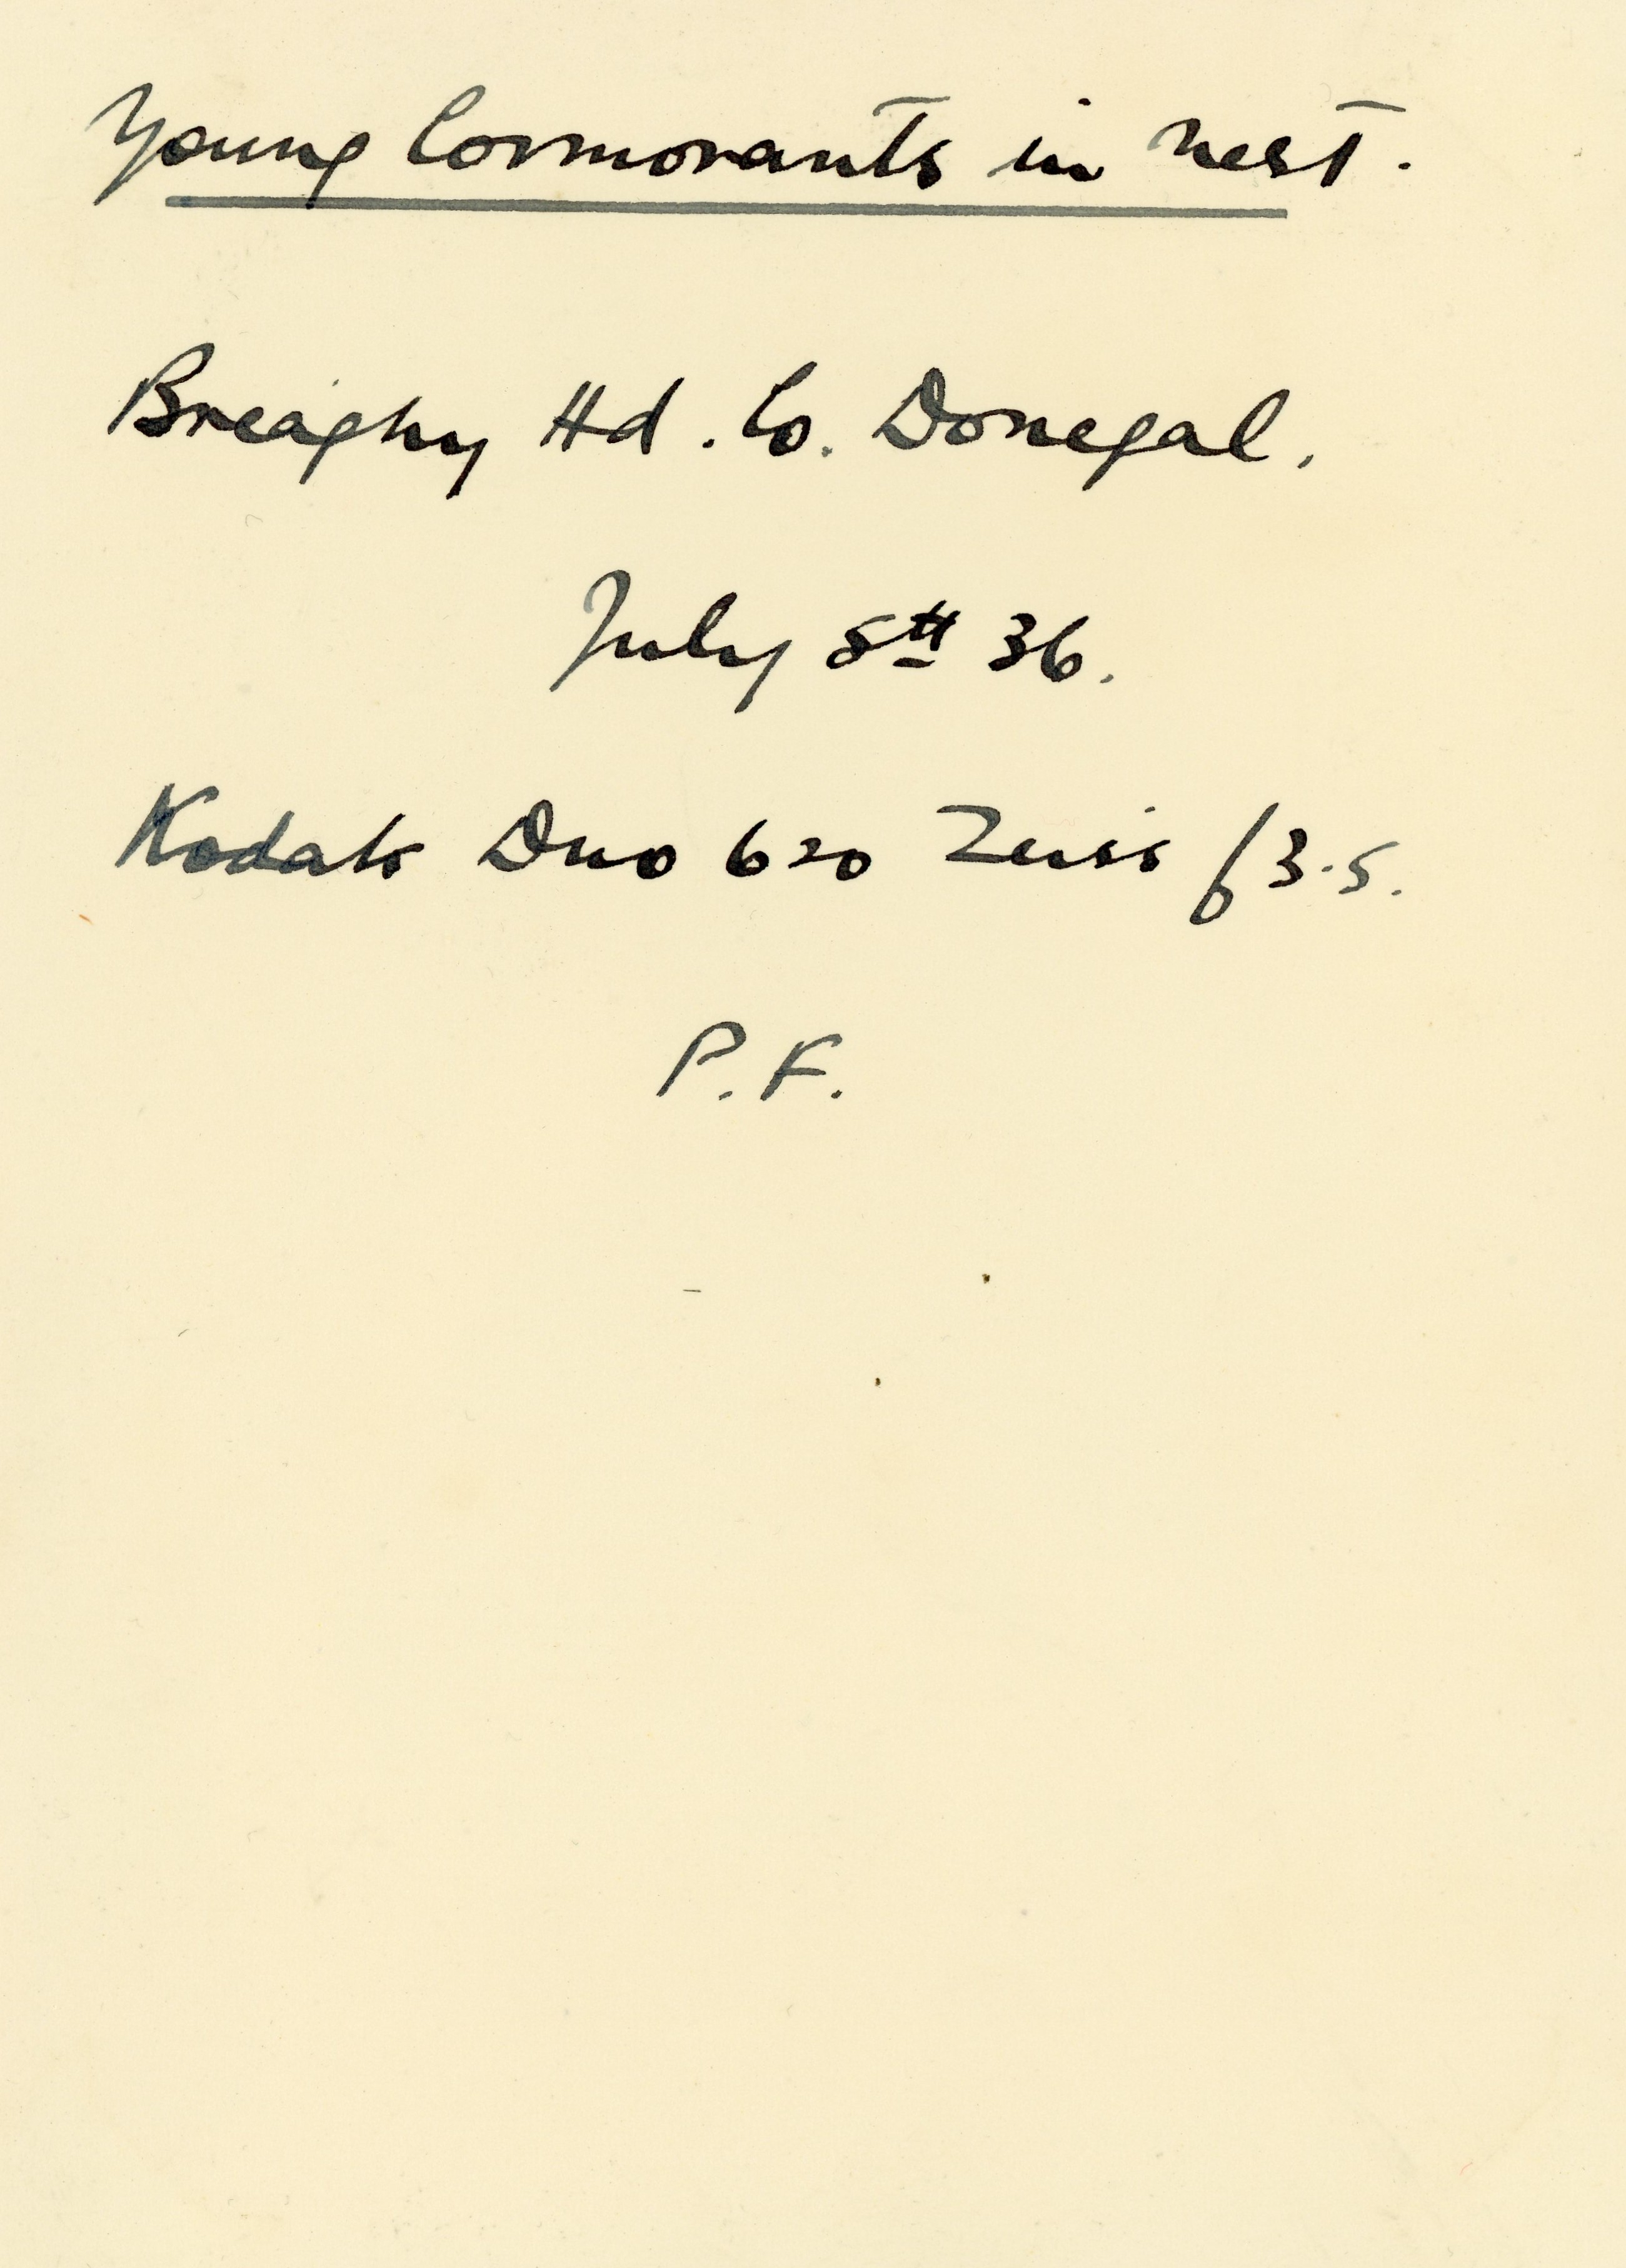 Young Cormorants in nest.
Breaghy Hd. Co. Donegal.
July 8th 36.
Kodak Duo 620 Zeiss f3.5.
P.F.